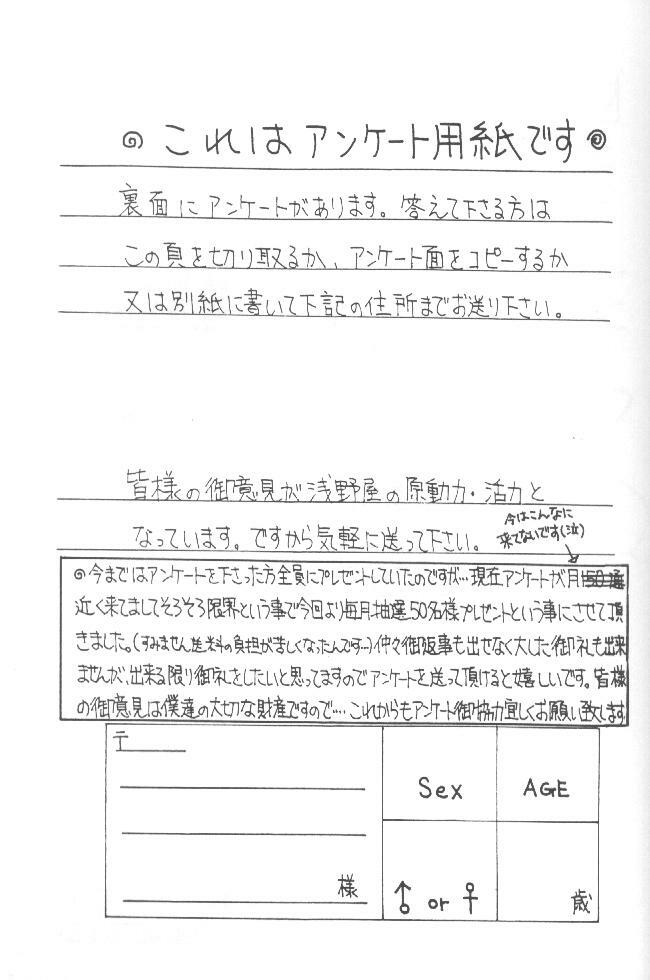 ◎ これは アンケート用紙です ◎
裏面にアンケートがあります。答えて下さる方は
この頁を切り取るか、アンケート面をコピーするか
又は別紙に書いて下記の住所までお送り下さい。
皆様の御意見が浅野屋の原動力・活力と
なっています。ですから気軽に送って下さい。
今はこんなに
来てないです(泣)
◎今まではアンケートを下さった方全員にプレゼントしていたのですが…現在アンケートが月150通
近く来てましてそろそろ限界という事で今回より毎月抽選50名様プレゼントという事にさせて頂
きました。(すみません送料の負担が苦しくなったんです…)仲々御返事も出せなく大した御礼も出来
ませんが、出来る限り御礼をしたいと思ってますのでアンケートを送って頂けると嬉しいです。皆様
の御意見は僕達の大切な財産ですので…これからもアンケート御協力宜しくお願い致します
〒
様
Sex
AGE
♂ or ♀
歳